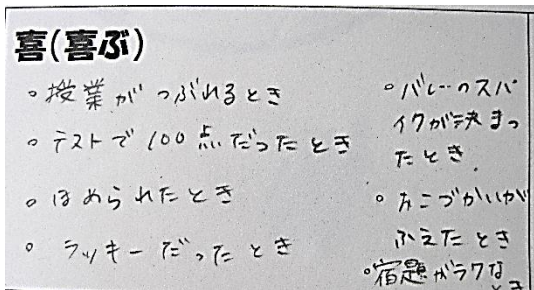 喜(喜ぶ)
。授業がつぶれるとき
。テストで100点だったとき
。ほめられたとき
。ラッキーだったとき
。バレーのスパ
イクが決まっ
たとき
。おこづかいが
ふえたとき
。宿題がラクな
とき